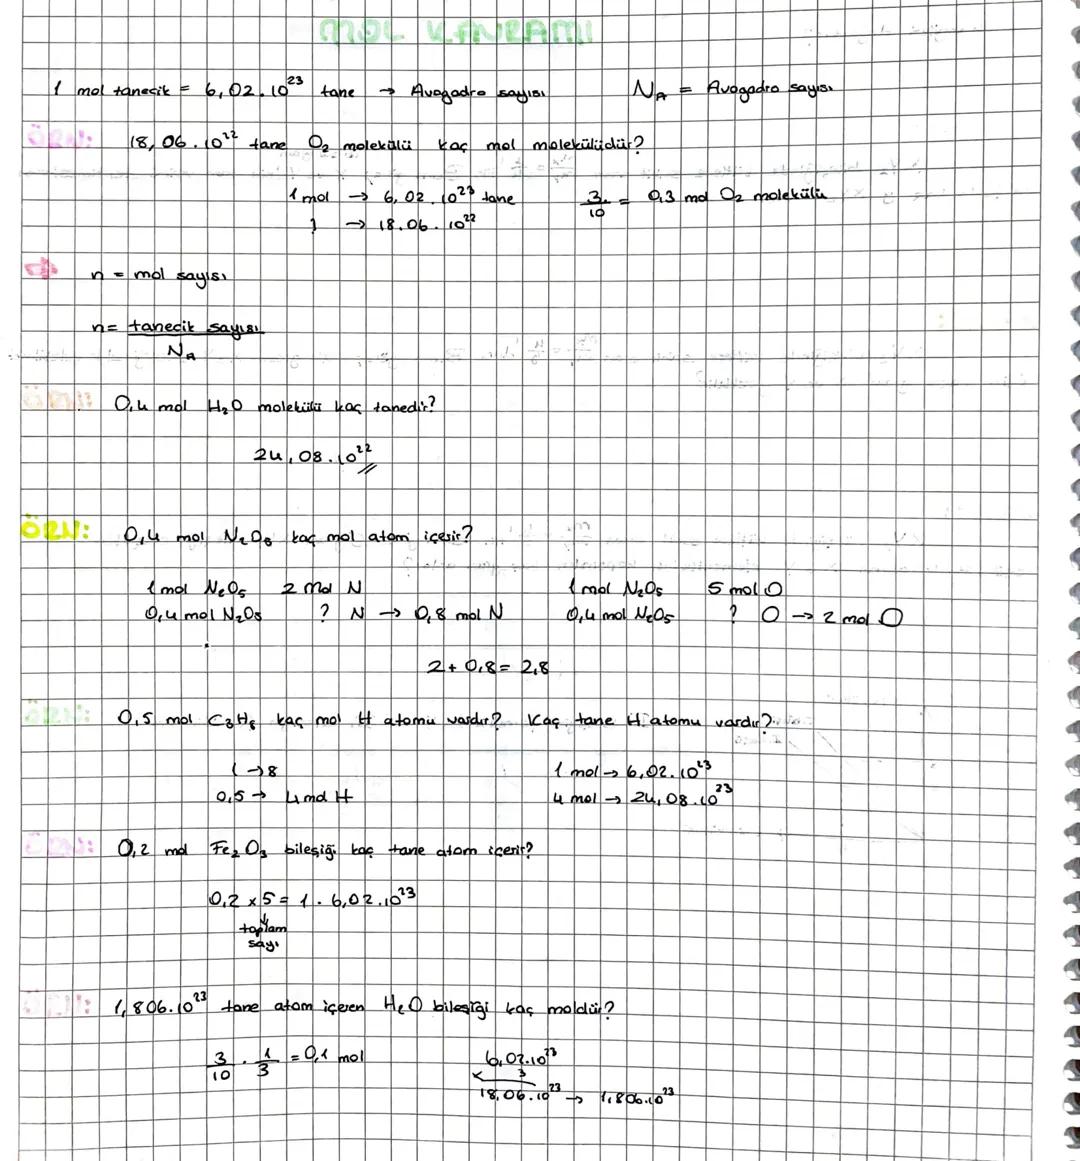 MOL KAVRAMI
1 mol tanecik = 6,02.10²³ tane → Avogadro sayısı N_A = Avogadro sayısı
ÖRN: 18,06.10²² tane O₂ molekülü kaç mol molekülüdür?
1 mol → 6,02.10²³ tane 3/10 = 0,3 mol O₂ molekülü
? → 18.06.10²²
⇒ n = mol sayısı
n = tanecik sayısı / N_A
ÖRN: 0,4 mol H₂O molekülü kaç tanedir?
24,08.10²²
ÖRN: 0,4 mol N₂O₅ kaç mol atom içerir?
1 mol N₂O₅ 2 mol N 1 mol N₂O₅ 5 mol O
0,4 mol N₂O₅ ? N → 0,8 mol N 0,4 mol N₂O₅ ? O → 2 mol O
2 + 0,8 = 2,8
ÖRN: 0,5 mol C₃H₈ kaç mol H atomu vardır? Kaç tane H atomu vardır?
1 → 8 1 mol → 6,02.10²³
0,5 → 4 mol H 4 mol → 24,08.10²³
ÖRN: 0,2 mol Fe₂O₃ bileşiği kaç tane atom içerir?
0,2 x 5 = 1 . 6,02.10²³
toplam
sayı
ÖRN: 1,806.10²³ tane atom içeren H₂O bileşiği kaç moldür?
3/10 . 1/3 = 0,1 mol 6,02.10²³
x 3
18,06.10²³ → 1,806.10²³